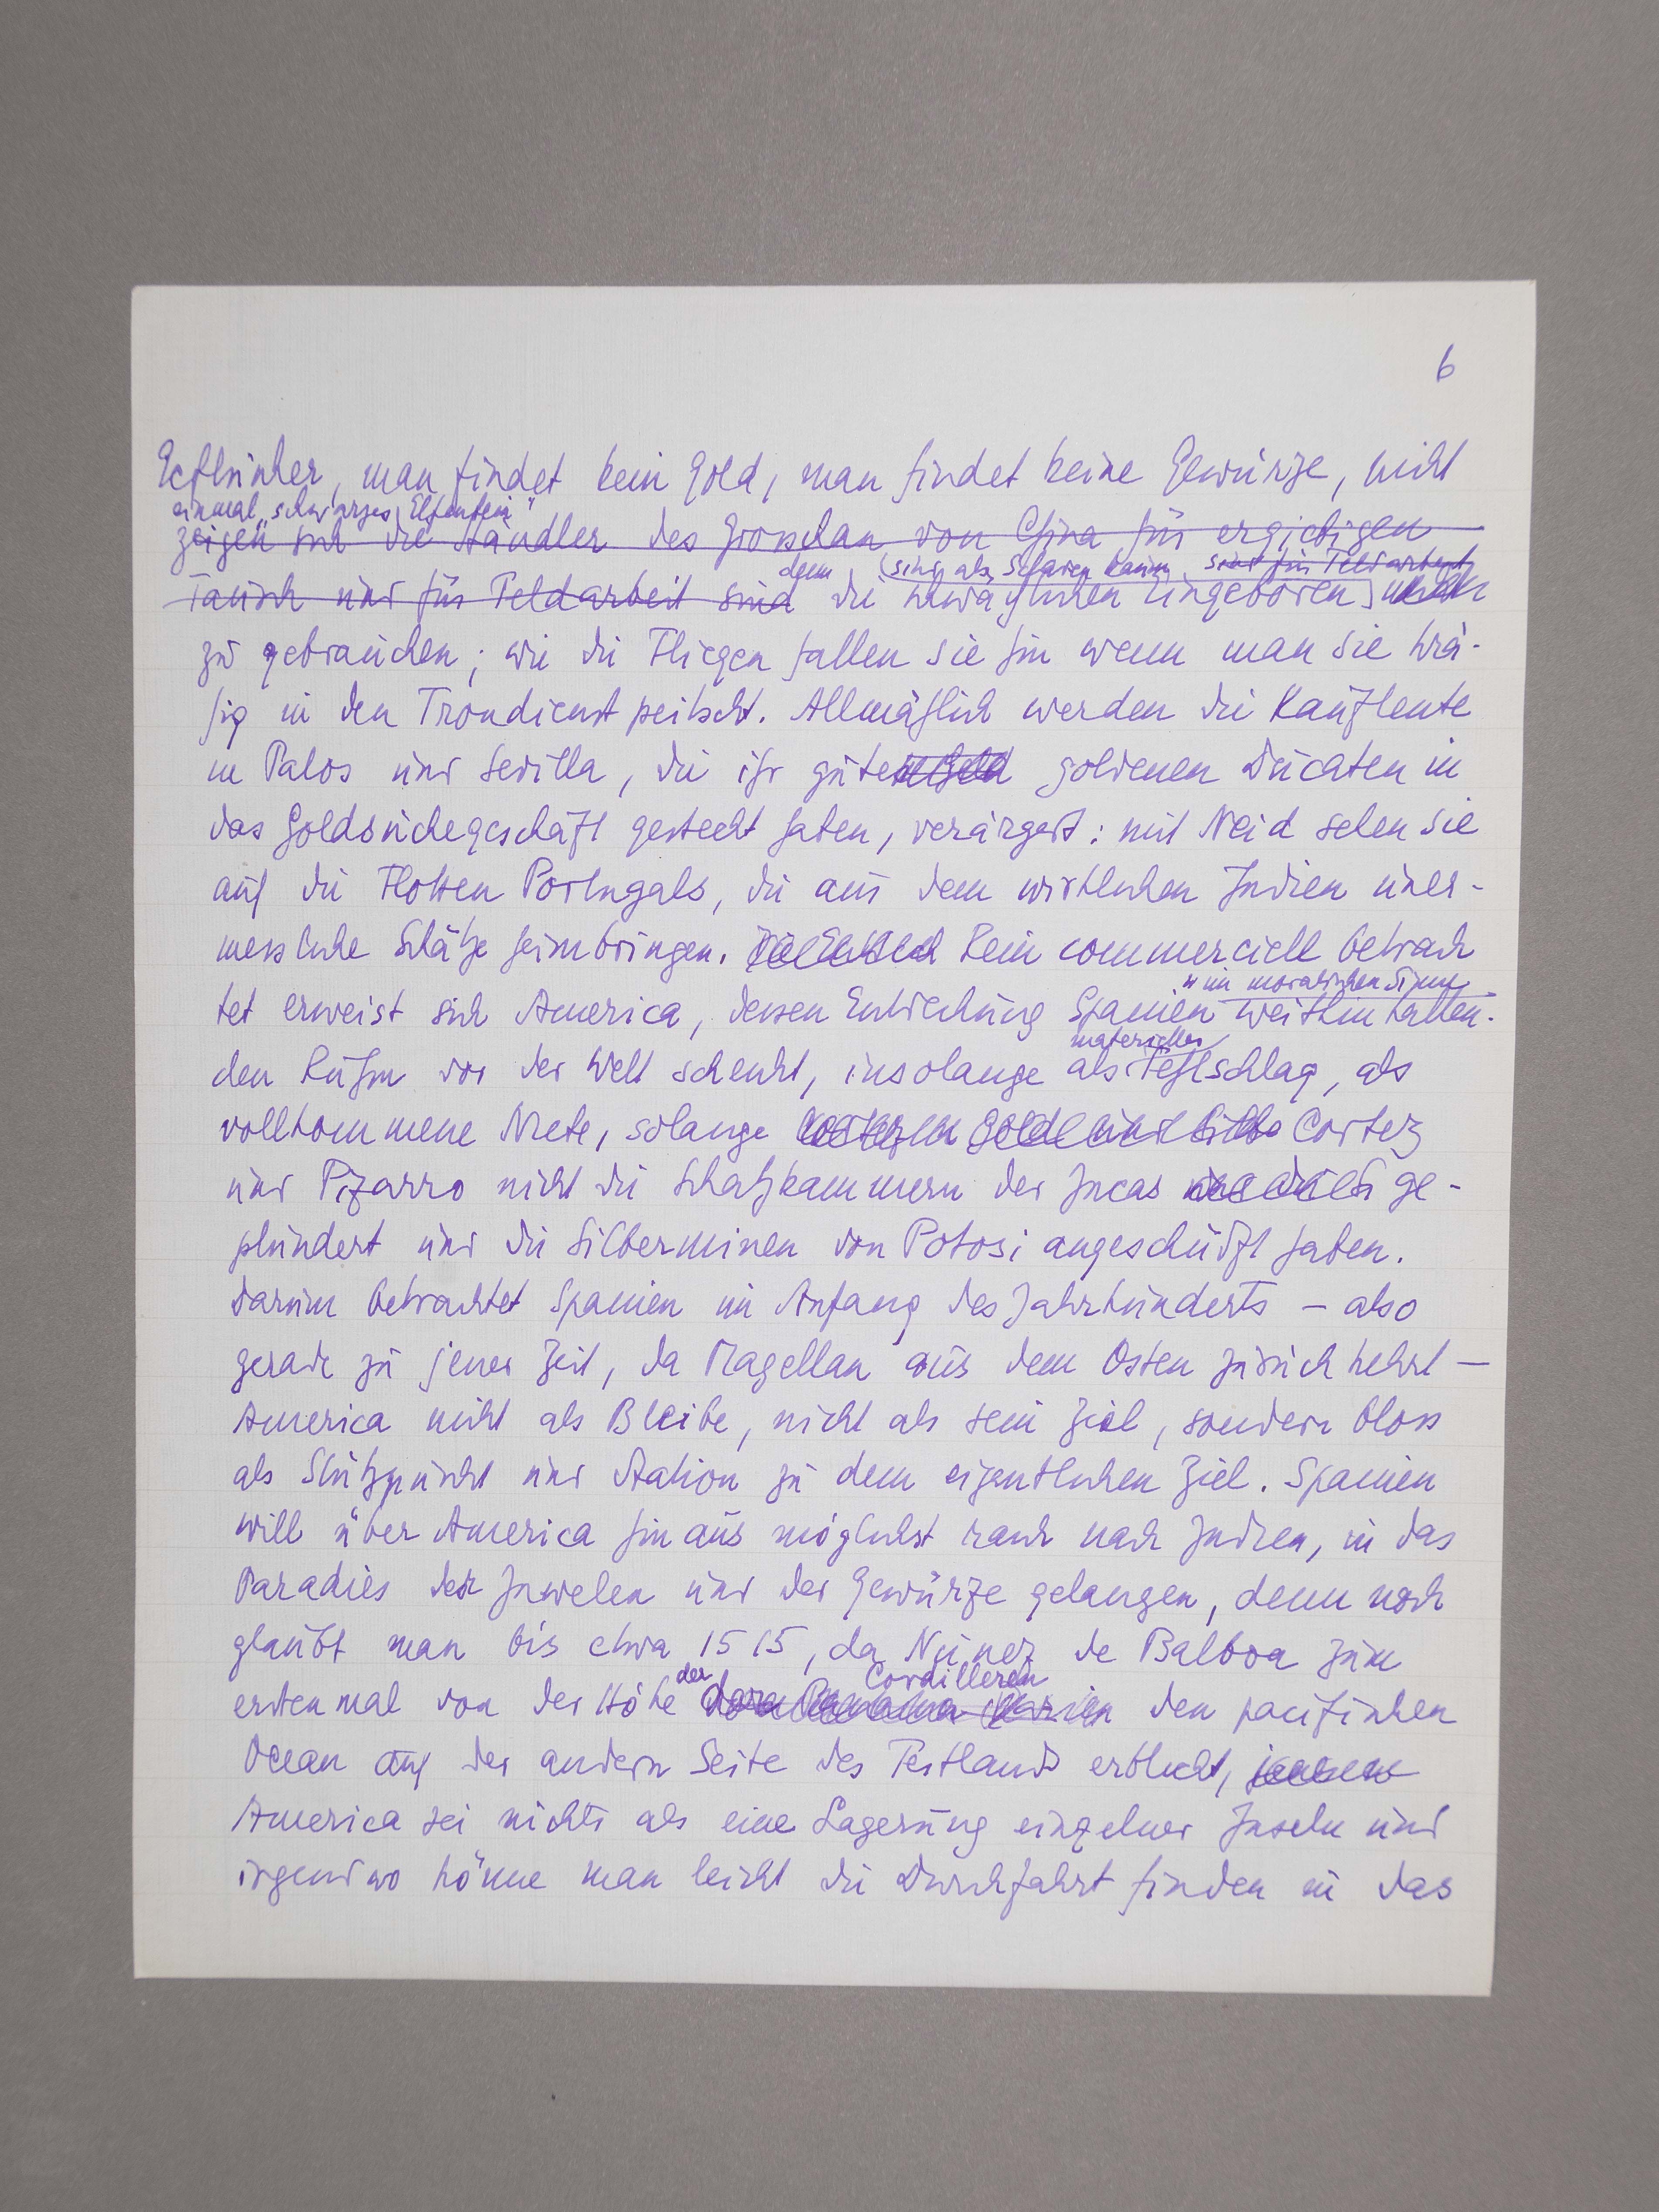 6
Echtsilber, man findet kein Gold, man findet keine Gewürze, nicht
einmal „schwarzes Elfenbein"
zeigen sich die Händler des Grosskan von China für ergiebigen
denn (sind als Sclaven kaum sind für Feldarbeit
Tausch und für Feldarbeit sind die schwächlichen Eingeboren]
zu gebrauchen; wie die Fliegen fallen sie hin wenn man sie krä-
fig in den Frondienst peitscht. Allmählich werden die Kaufleute
in Palos und Sevilla, die ihr guten Geld goldenen Ducaten in
das Goldsuchegeschäft gesteckt haben, verärgert: mit Neid sehen sie
auf die Flotten Portugals, die aus dem wirklichen Indien uner-
messliche Schätze heimbringen. Rein commerciell betrach
tet erweist sich America, dessen Entdeckung Spanien weithin hallen-
„im moralischen Sinne
den Ruhm vor der Welt schenkt, insolange als Fehlschlag, als
materieller
vollkommene Niete, solange Gold und Silber Cortez
und Pizarro nicht die Schatzkammern der Incas ge-
plündert und die Silberminen von Potosi angeschürft haben.
Darum betrachtet Spanien im Anfang des Jahrhunderts – also
gerade zu jener Zeit, da Magellan aus dem Osten zurückkehrt –
America nicht als Bleibe, nicht als sein Ziel, sondern bloss
als Stützpunkt und Station zu dem eigentlichen Ziel. Spanien
will über America hinaus möglichst rasch nach Indien, in das
Paradies der Juwelen und der Gewürze gelangen, denn noch
glaubt man bis etwa 1515, da Nunez de Balboa zum
der Cordilleren
erstenmal von der Höhe Panama den pacifischen
Ocean auf der andern Seite des Festlands erblickt,
America sei nichts als eine Lagerung einzelner Inseln und
irgendwo könne man leicht die Durchfahrt finden in das